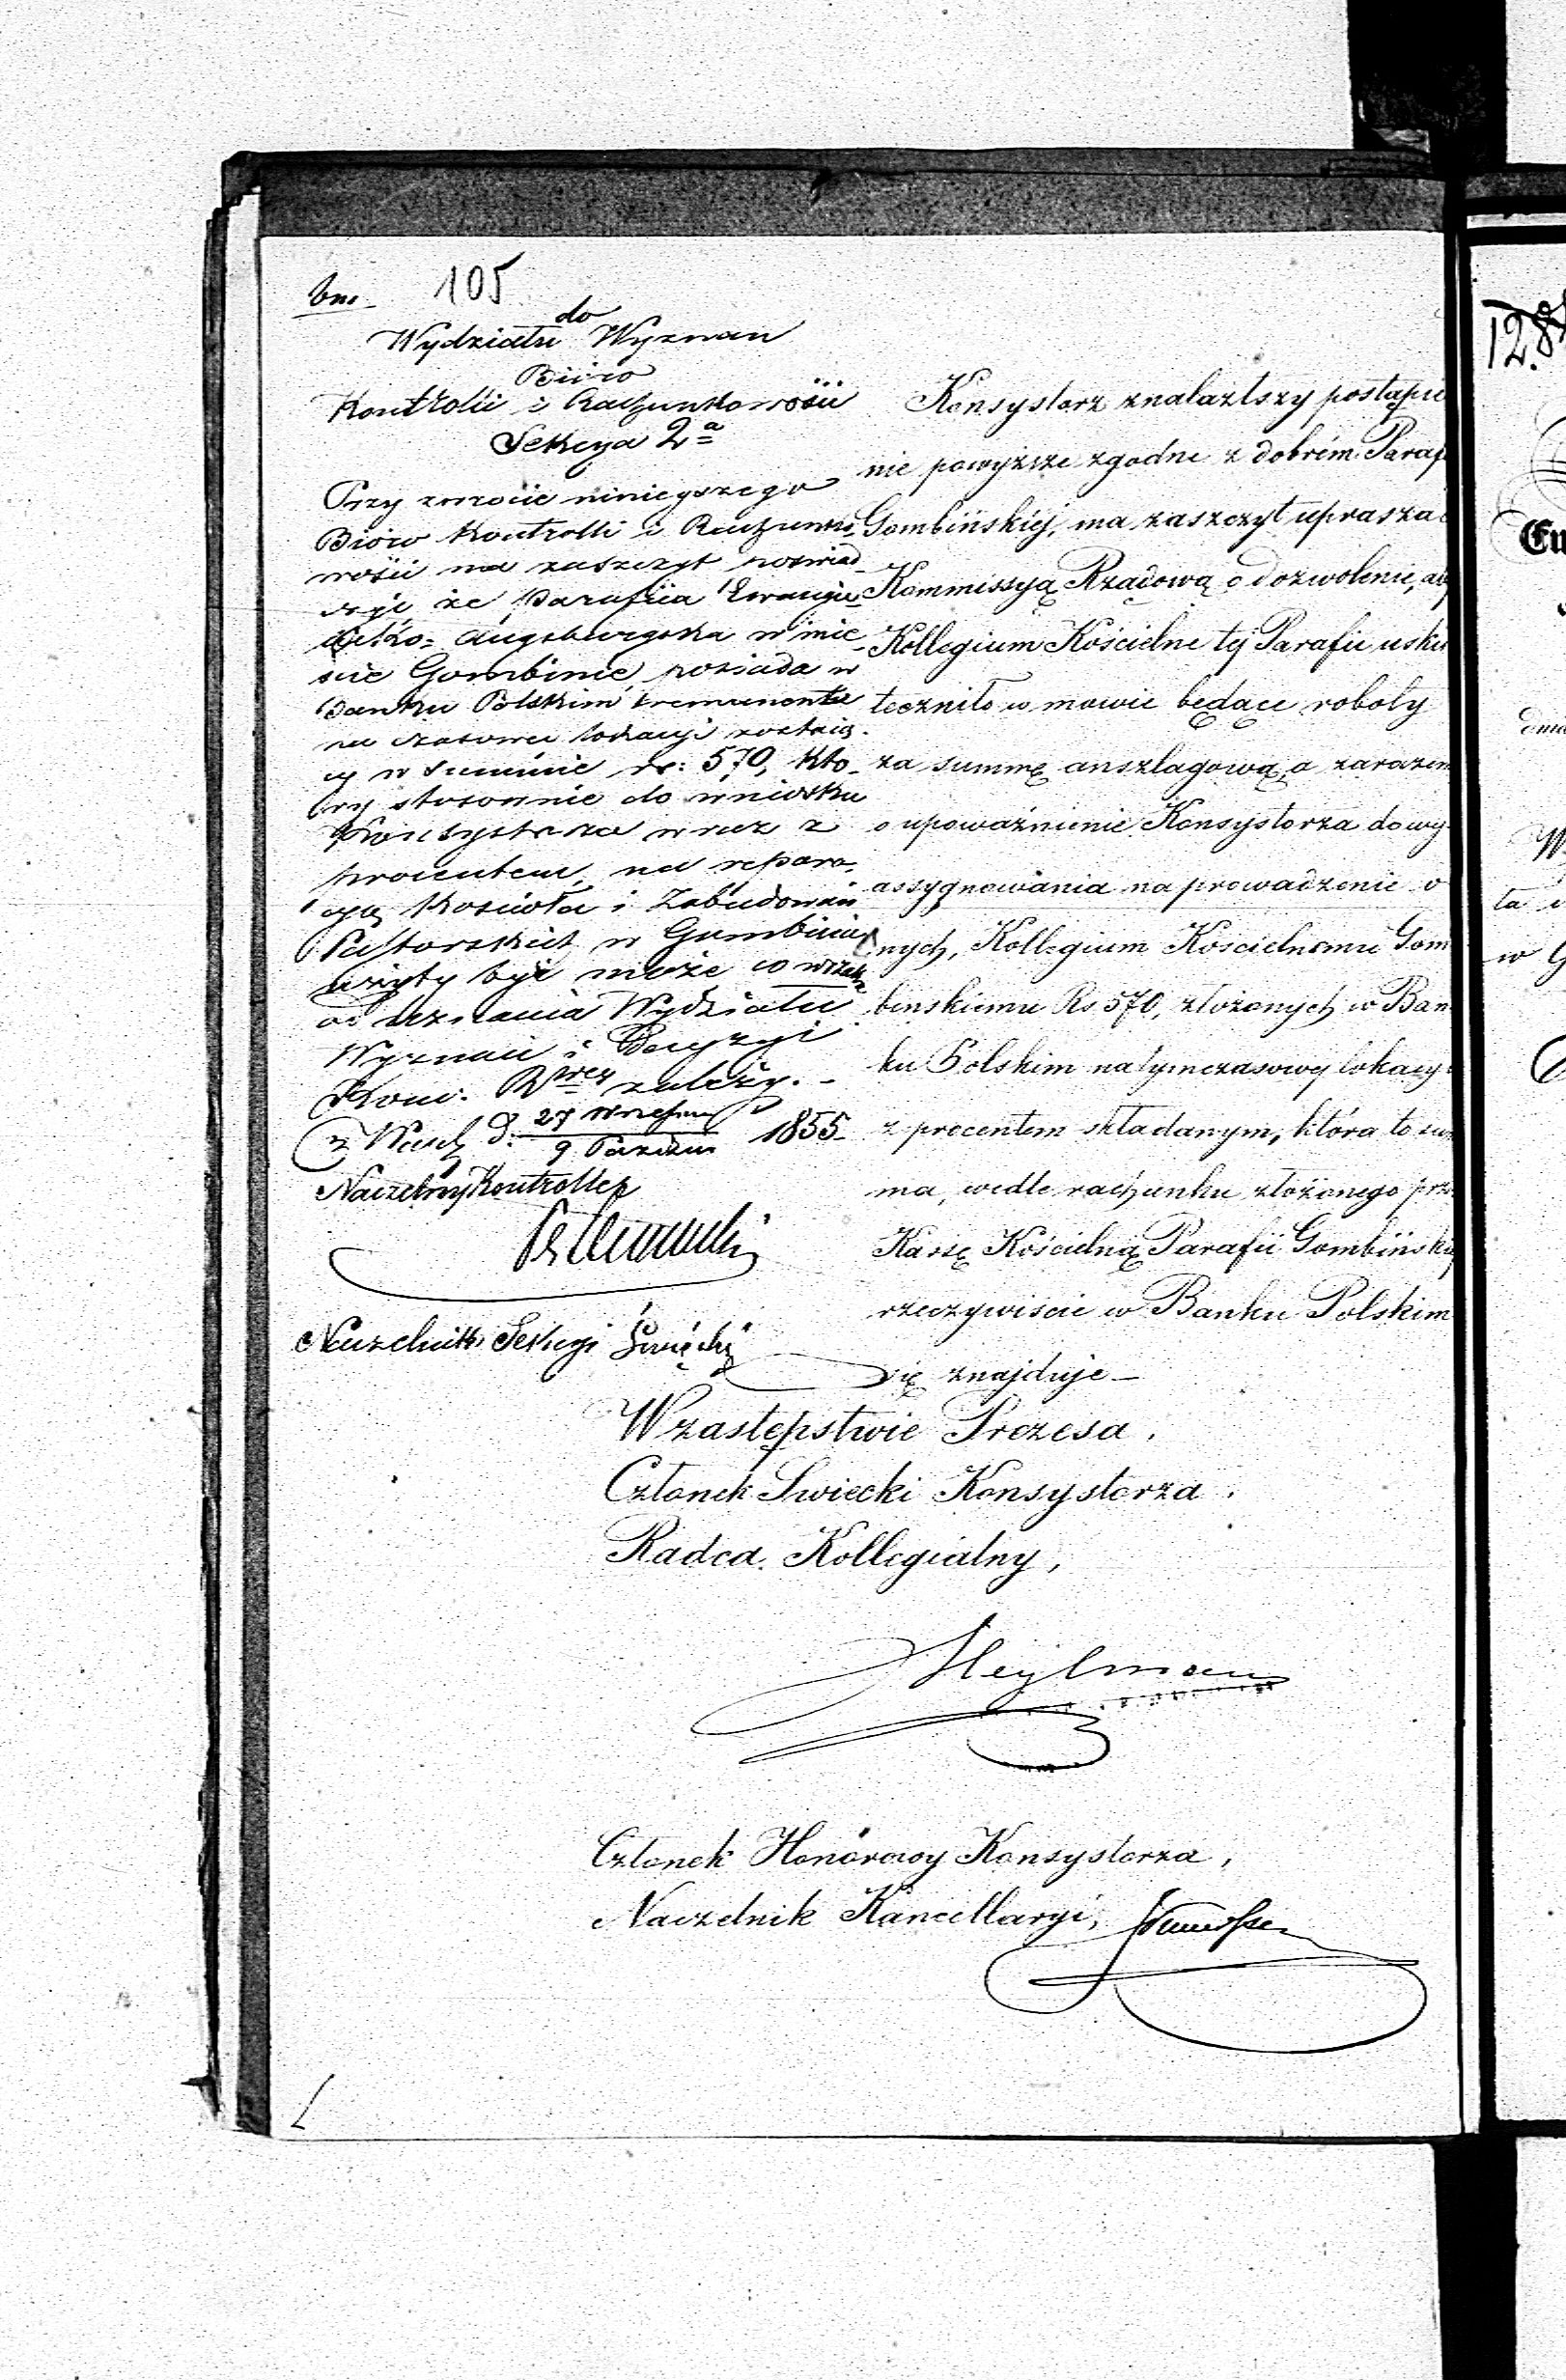 105
do
Wydziału Wyznan
Biuro
Kontrolli i Rachunkowości
Sekcya 2ª
Przy zwrocie niniejszego
Bióro Kontrolli i Rachunko-
wości ma zaszczyt poświad-
czyć że Parafia Ewangie-
licko-Augsburgska w mie-
ście Gombinie, posiada w
Banku Polskim remanenta
na czasowej lokacyi zostają-
cy w summie rs: 570, któ-
ry stosownie do wniosku
Konsystorza wraz z
procentem, na repara-
cyą Kościoła i Zabudowań
Pastorskich w Gombinie
użyty być może co wszakże
od uznania Wydziału
Wyznań i Decyzyi
Kom. Rzącey zależy. -
z Rach d: 27 Wrześn / 9 Paździer 1855
Naczelny Kontroller
Naczelnik Sekcyi Święcki
Konsystorz znalazłszy postąpie
nie powyższe zgodne z dobrém Paraf
Gombińskiéj, ma zaszczyt uprasza
Kommissyą Rządową o dozwolenie, ab
Kollegium Kościelne téj Parafii usku
teczniło w mowie będące roboty
za summę anszlagową, a zarazem
o upoważnienie Konsystorza do wy-
assygnowania na prowadzenie o
nych, Kollegium Kościelnemu Gom
binskiemu Rs 570, złożonych w Ban
ku Polskim na tymczasowey lokacyi
z procentem składanym, która to su
ma, wedle rachunku złożonego prz
Kassę Kościelną Parafii Gombińskiej
rzeczywiście w Banku Polskim
się znajduje -
W zastępstwie Prezesa,
Członek Swiecki Konsystorza,
Radca Kollegialny,
Heylman
Członek Honorowy Konsystorza,
Naczelnik Kancellaryi,
128